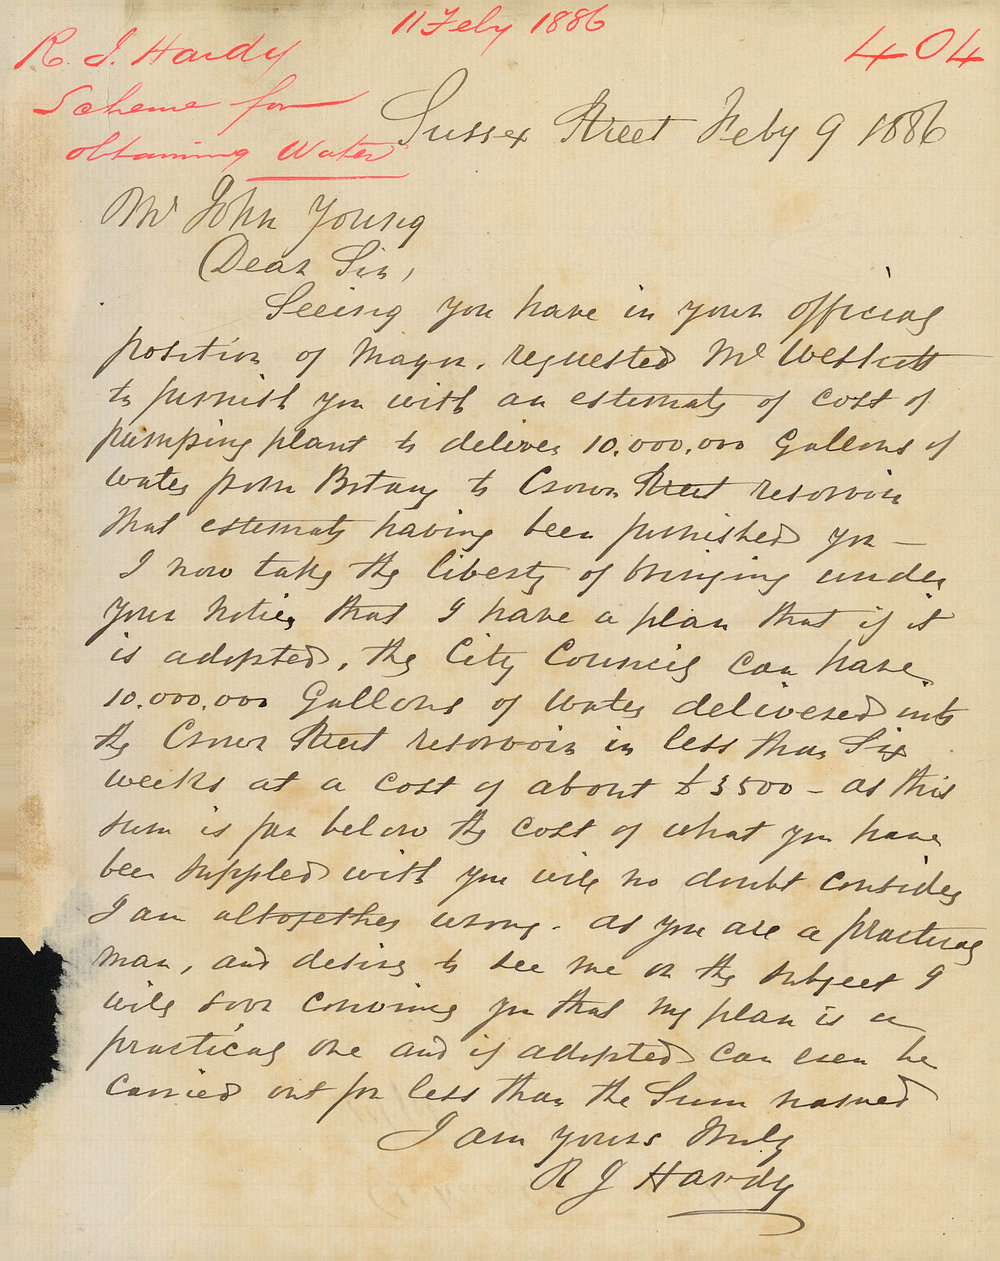 11 Feby 1886
404
R. J. Hardy
Scheme for
obtaining Water
Sussex Street Feby 9 1886
Mr John Young
Dear Sir,
Seeing you have in your official
position of Mayor, requested Mr Westcott
to furnish you with an estimate of cost of
pumping plant to deliver 10.000.000 Gallons of
water from Botany to Crown Street reservoir
that estimate having been furnished you —
I now take the liberty of bringing under
your notice that I have a plan that if it
is adopted, the City Council can have
10.000.000 Gallons of water delivered into
the Crown Street reservoir in less than Six
weeks at a cost of about £3500 – as this
sum is far below the cost of what you have
been suppled with you will no doubt consider
I am altogether wrong. as you are a practical
man, and desire to see me on the subject I
will soon convince you that my plan is a
practical one and if adopted can even be
carried out for less than the Sum named
I am yours truly
R J Hardy